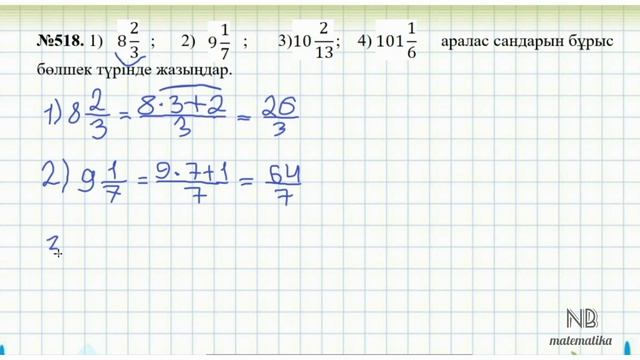 №518. 1) 8 2/3 ; 2) 9 1/7 ; 3)10 2/13; 4) 101 1/6 аралас сандарын бұрыс
бөлшек түрінде жазыңдар.
1) 8 2/3 = 8·3+2/3 = 26/3
2) 9 1/7 = 9·7+1/7 = 64/7
3
NB
matematika